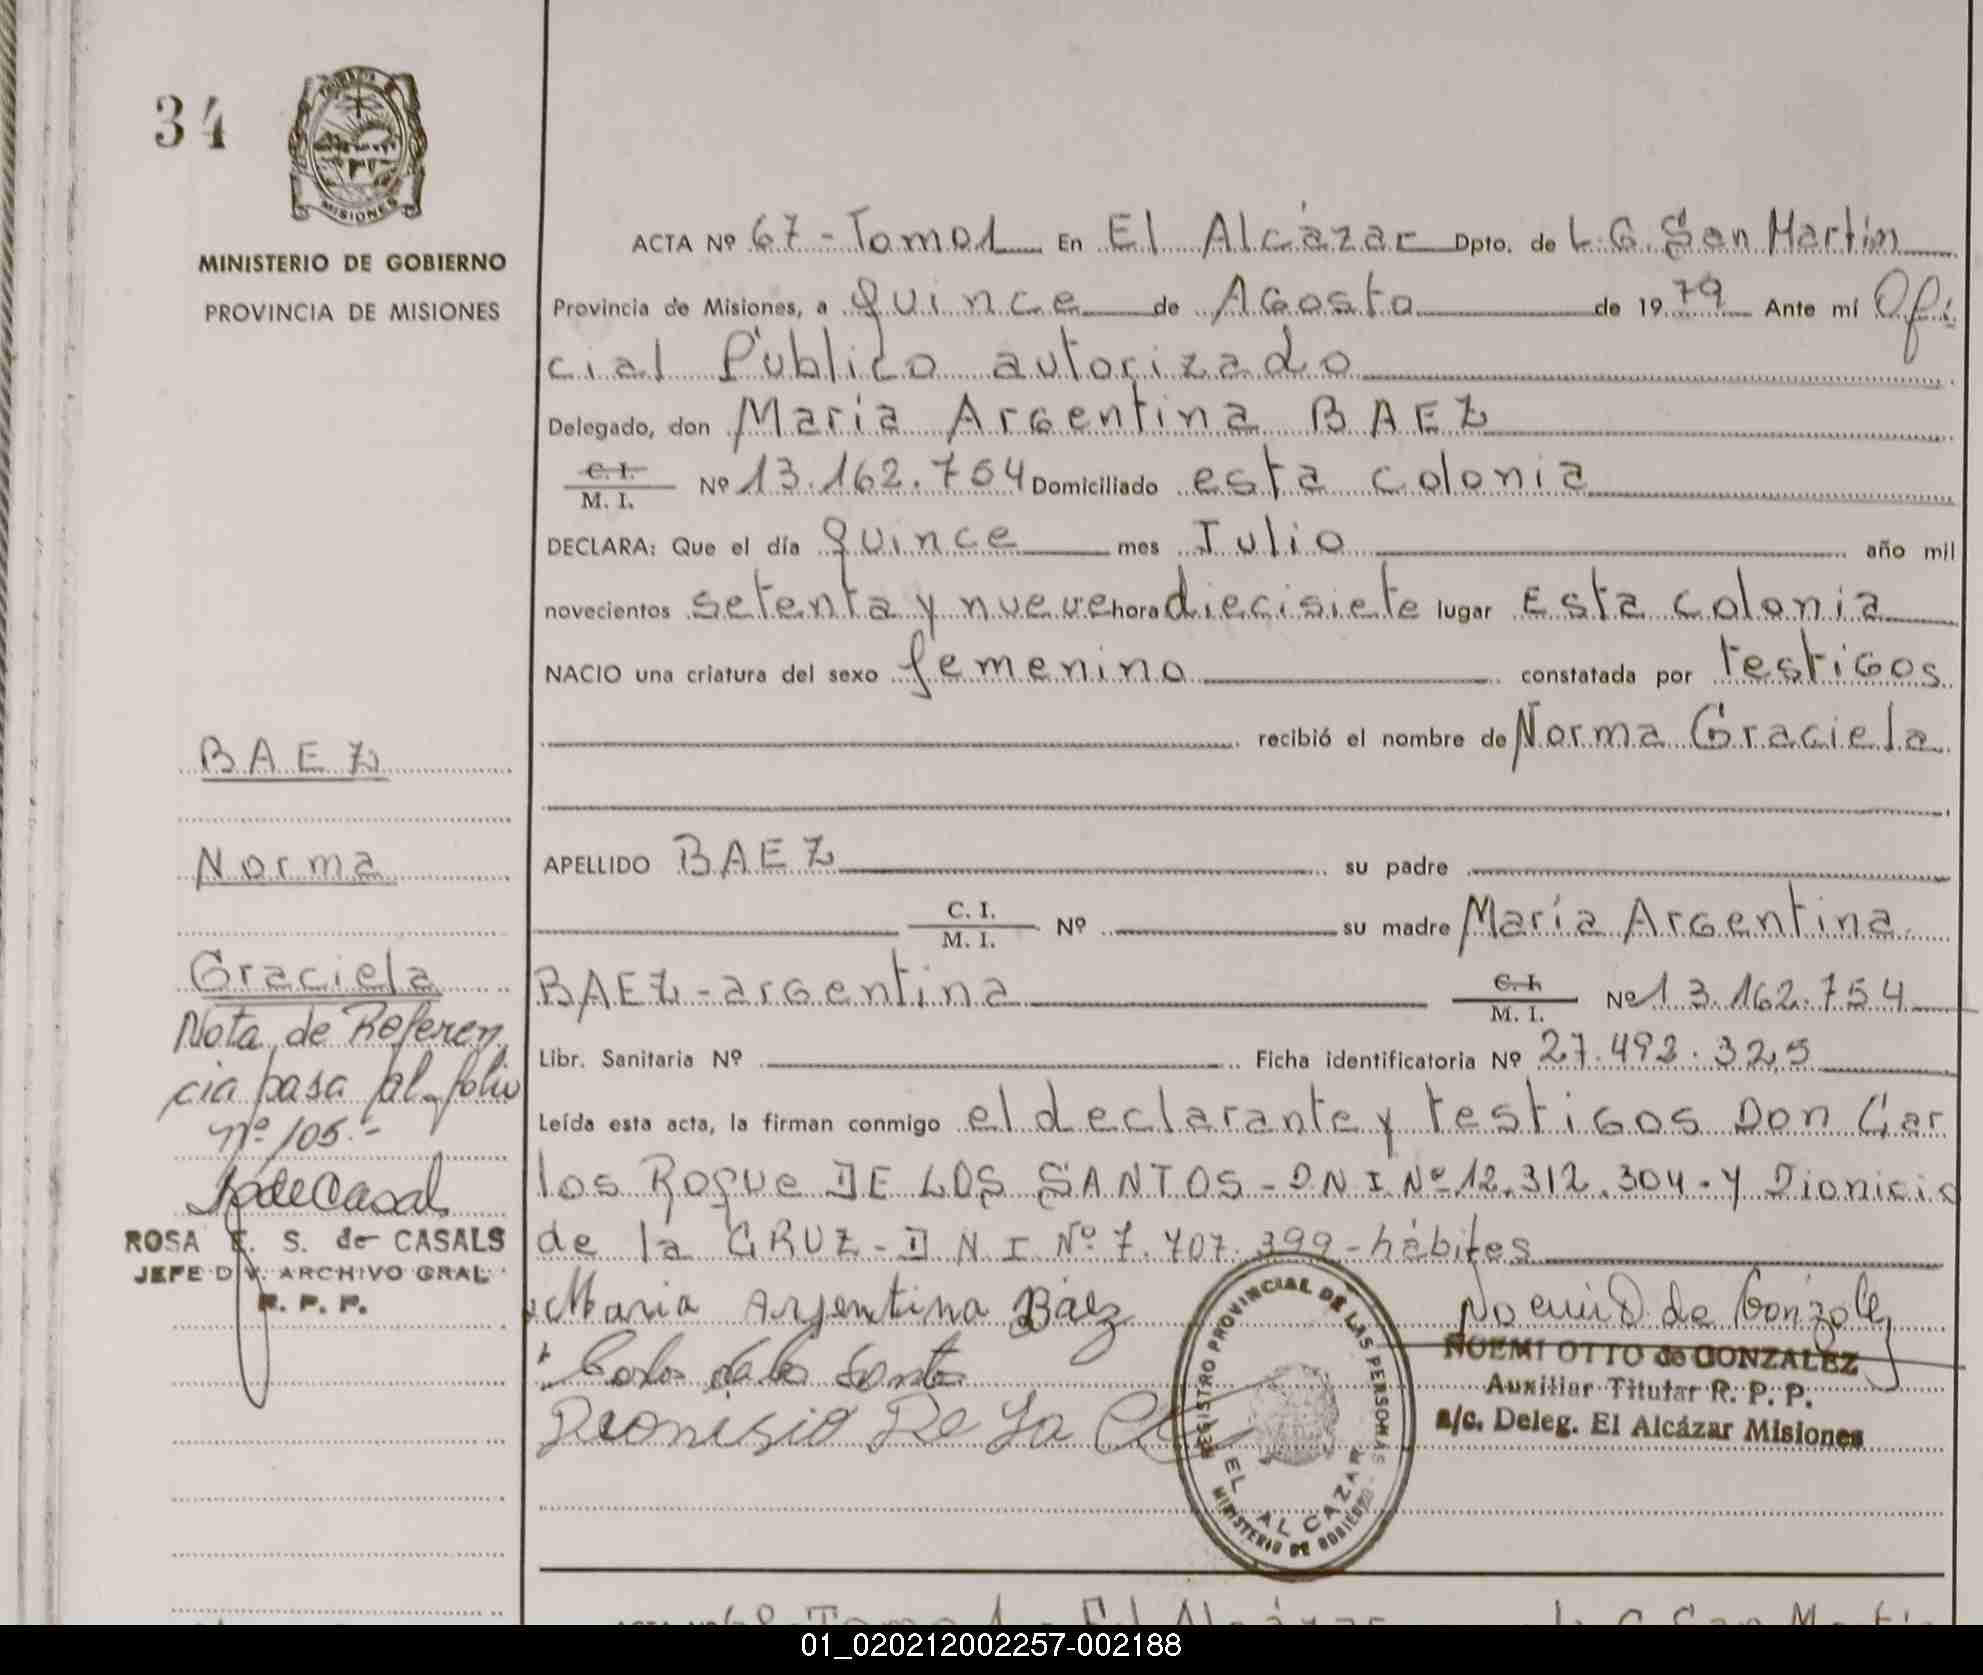 34
MISIONES
MINISTERIO DE GOBIERNO
PROVINCIA DE MISIONES
ACTA Nº 67 - Tomo 1 En El Alcázar Dpto. de L. G. San Martín
Provincia de Misiones, a quince de Agosto de 1979 Ante mí Ofi
cial Público autorizado
Delegado, don María Argentina BAEZ
C. I. / M. I. Nº 13.162.754 Domiciliado esta colonia
DECLARA: Que el día quince mes Julio año mil
novecientos setenta y nueve hora diecisiete lugar Esta colonia
NACIO una criatura del sexo femenino constatada por testigos
recibió el nombre de Norma Graciela
APELLIDO BAEZ su padre
C. I. / M. I. Nº su madre María Argentina
BAEZ - argentina C. I. / M. I. Nº 13.162.754
Libr. Sanitaria Nº Ficha identificatoria Nº 27.493.325
Leída esta acta, la firman conmigo el declarante y testigos Don Car
los Roque DE LOS SANTOS - DNI Nº 12.312.304 - y Dionicio
de la CRUZ - DNI Nº 7.707.399 - hábiles
María Argentina Báez
Dionisio De La
Noemi O. de González
NOEMI OTTO de GONZALEZ
Auxiliar Titular R. P. P.
a/c. Deleg. El Alcázar Misiones
REGISTRO PROVINCIAL DE LAS PERSONAS
EL ALCAZAR
MINISTERIO DE GOBIERNO
BAEZ
Norma
Graciela
Nota de Referen
cia pasa al folio
Nº 105.-
ROSA E. S. de CASALS
JEFE DIV. ARCHIVO GRAL.
R. P. P.
01_020212002257-002188